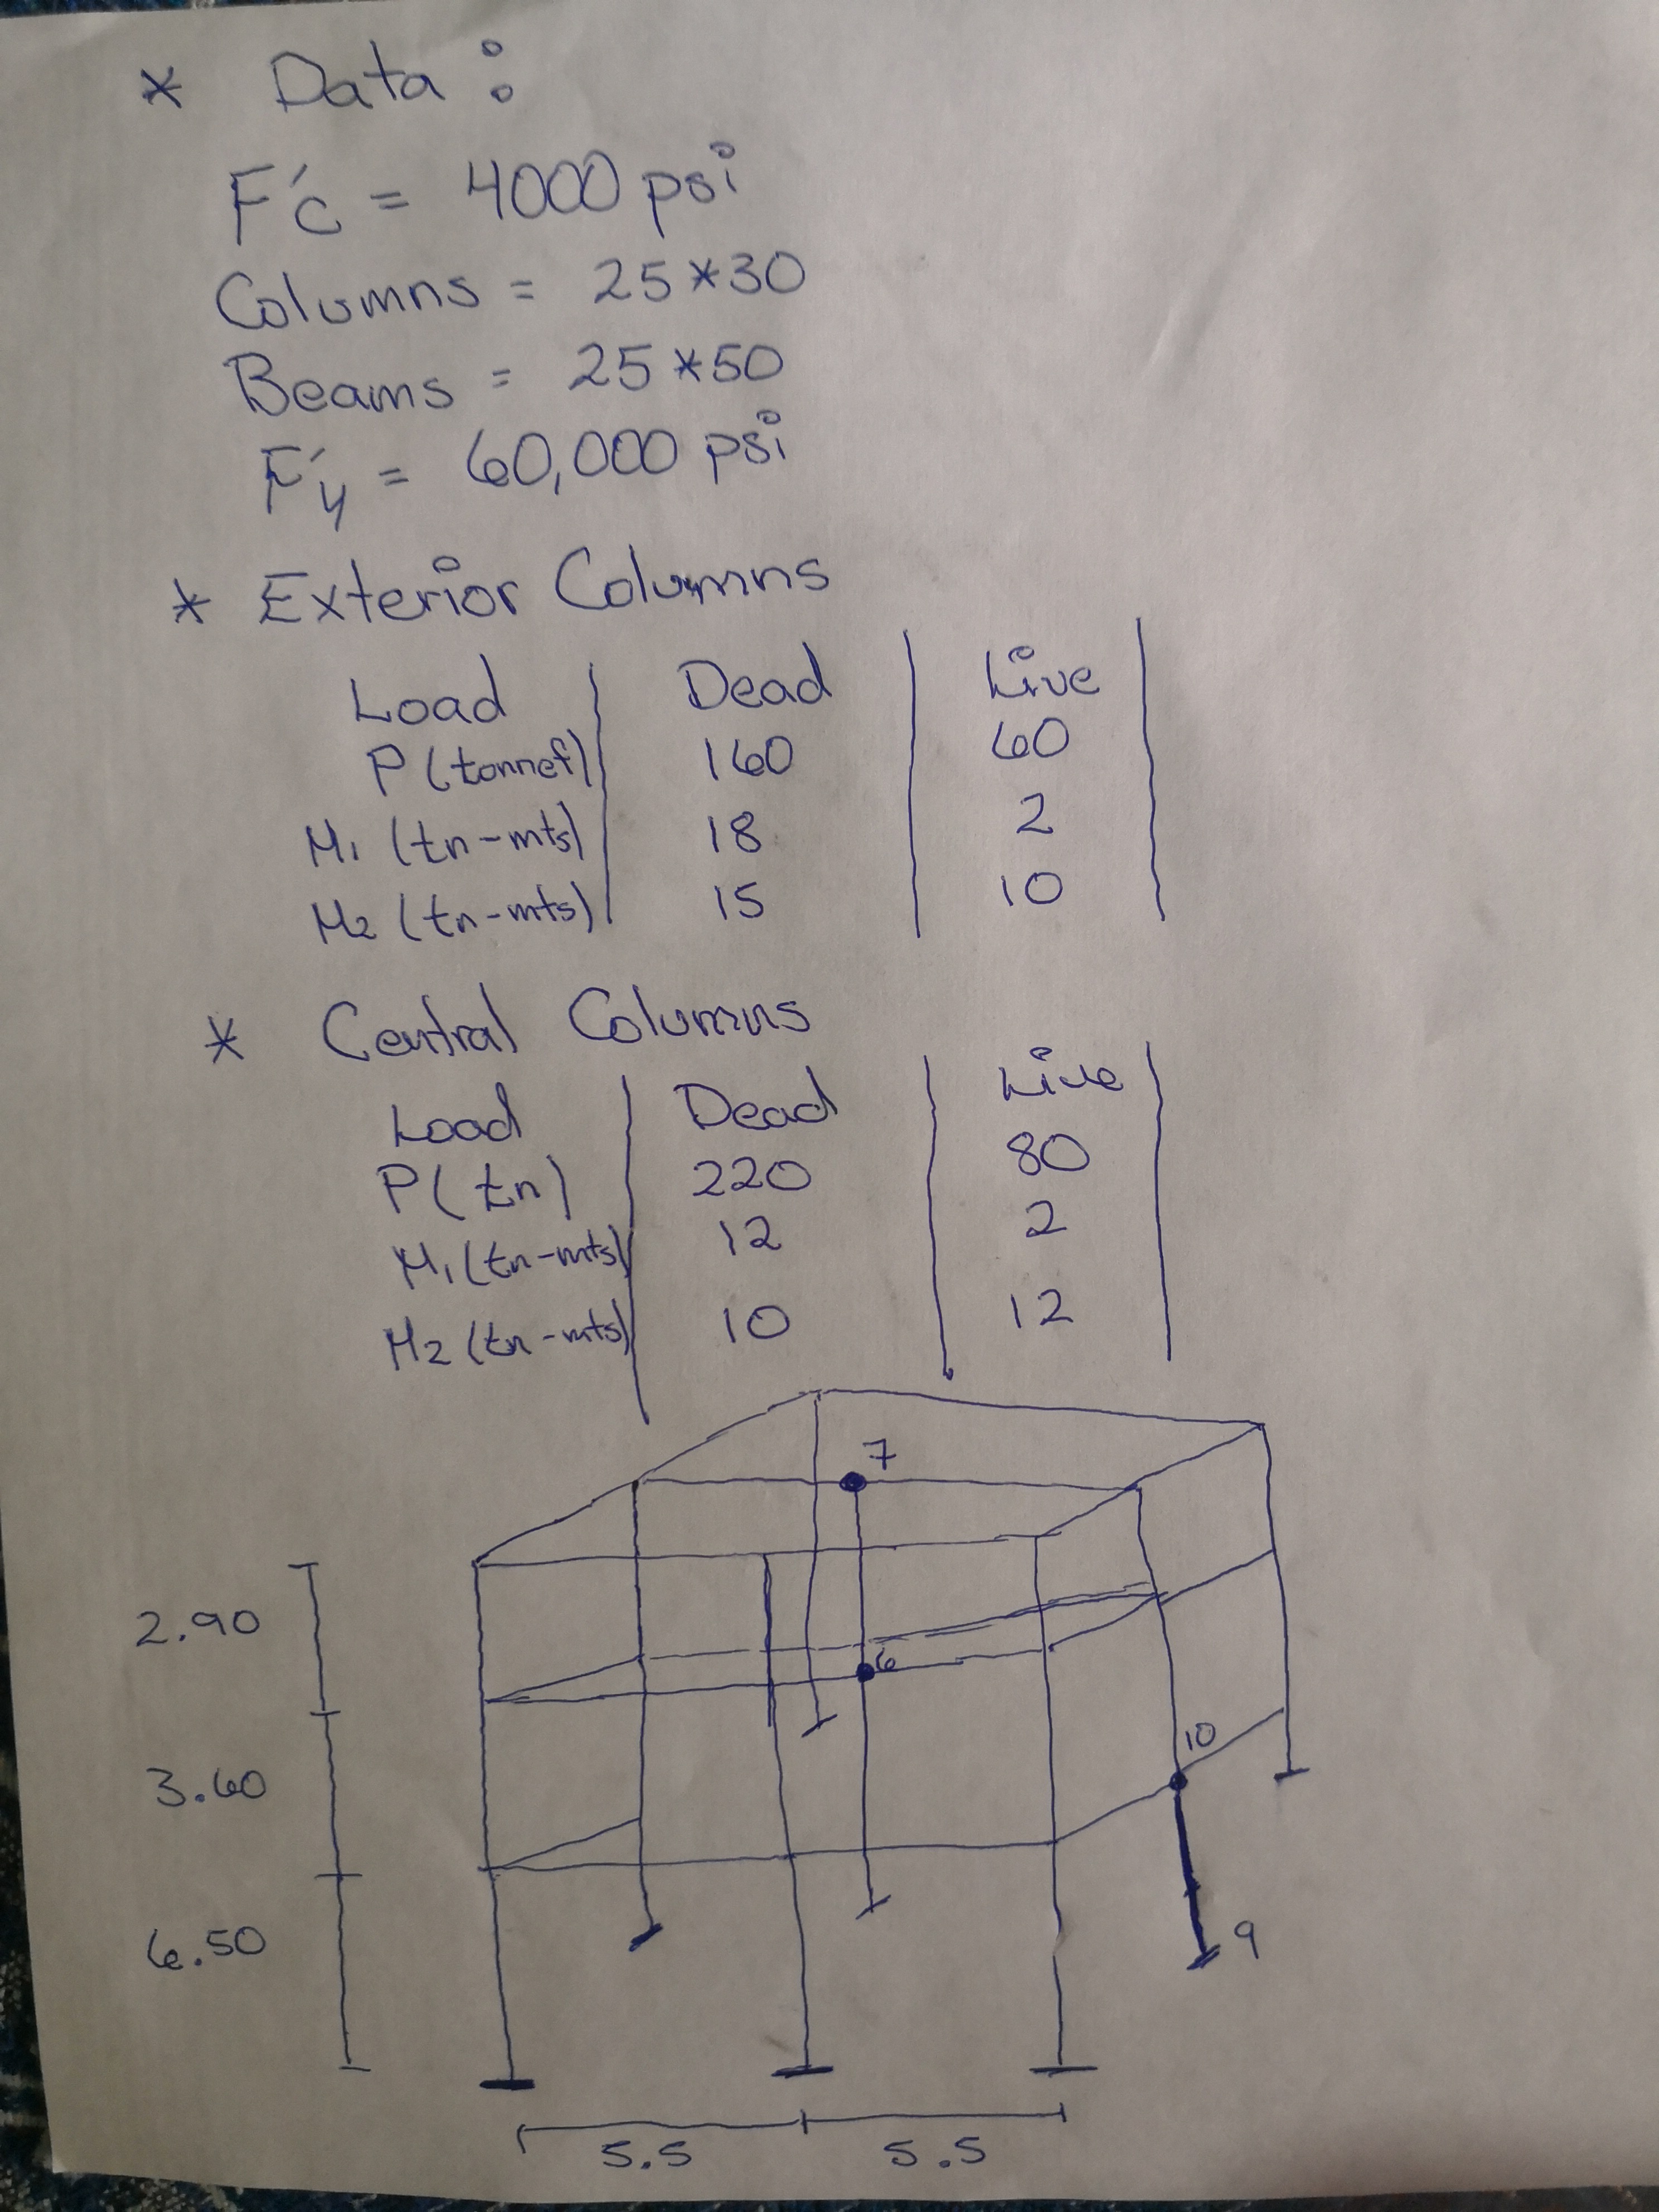 * Data :
F'c = 4000 psi
Columns = 25*30
Beams = 25*50
F'y = 60,000 psi
* Exterior Columns
Load | Dead | Live |
P (tonnef) | 160 | 60
M1 (tn-mts) | 18 | 2
M2 (tn-mts) | 15 | 10
* Central Columns
Load | Dead | Live |
P (tn) | 220 | 80
M1 (tn-mts) | 12 | 2
M2 (tn-mts) | 10 | 12
7
2.90
6
10
3.60
6.50
9
5.5 5.5